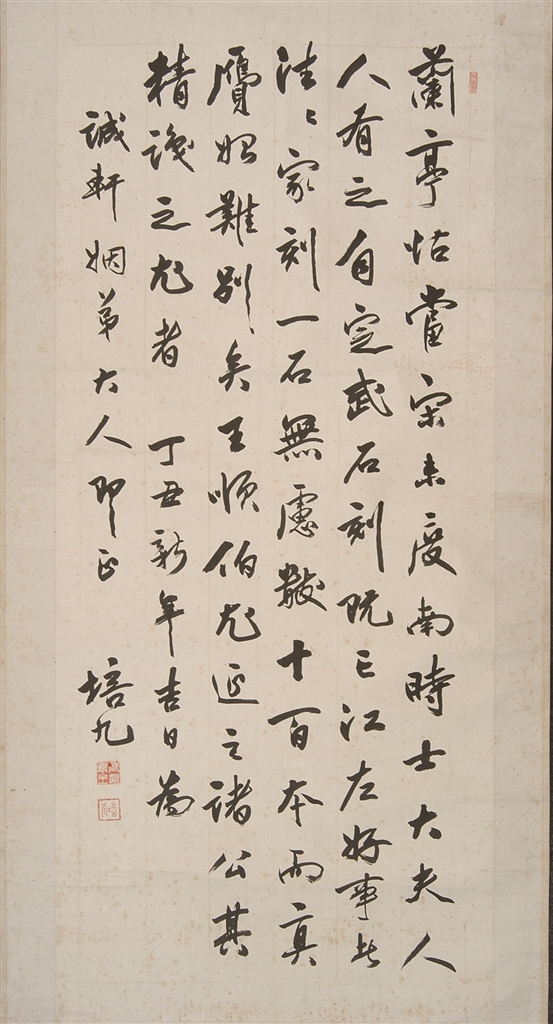 蘭亭帖當宋未度南時士大夫人
人有之自定武石刻既亡江左好事者
往〻家刻一石無慮數十百本而真
贗始難別矣王順伯尤延之諸公其
精識之尤者 丁丑新年吉日為
誠軒姻弟大人即正 培九